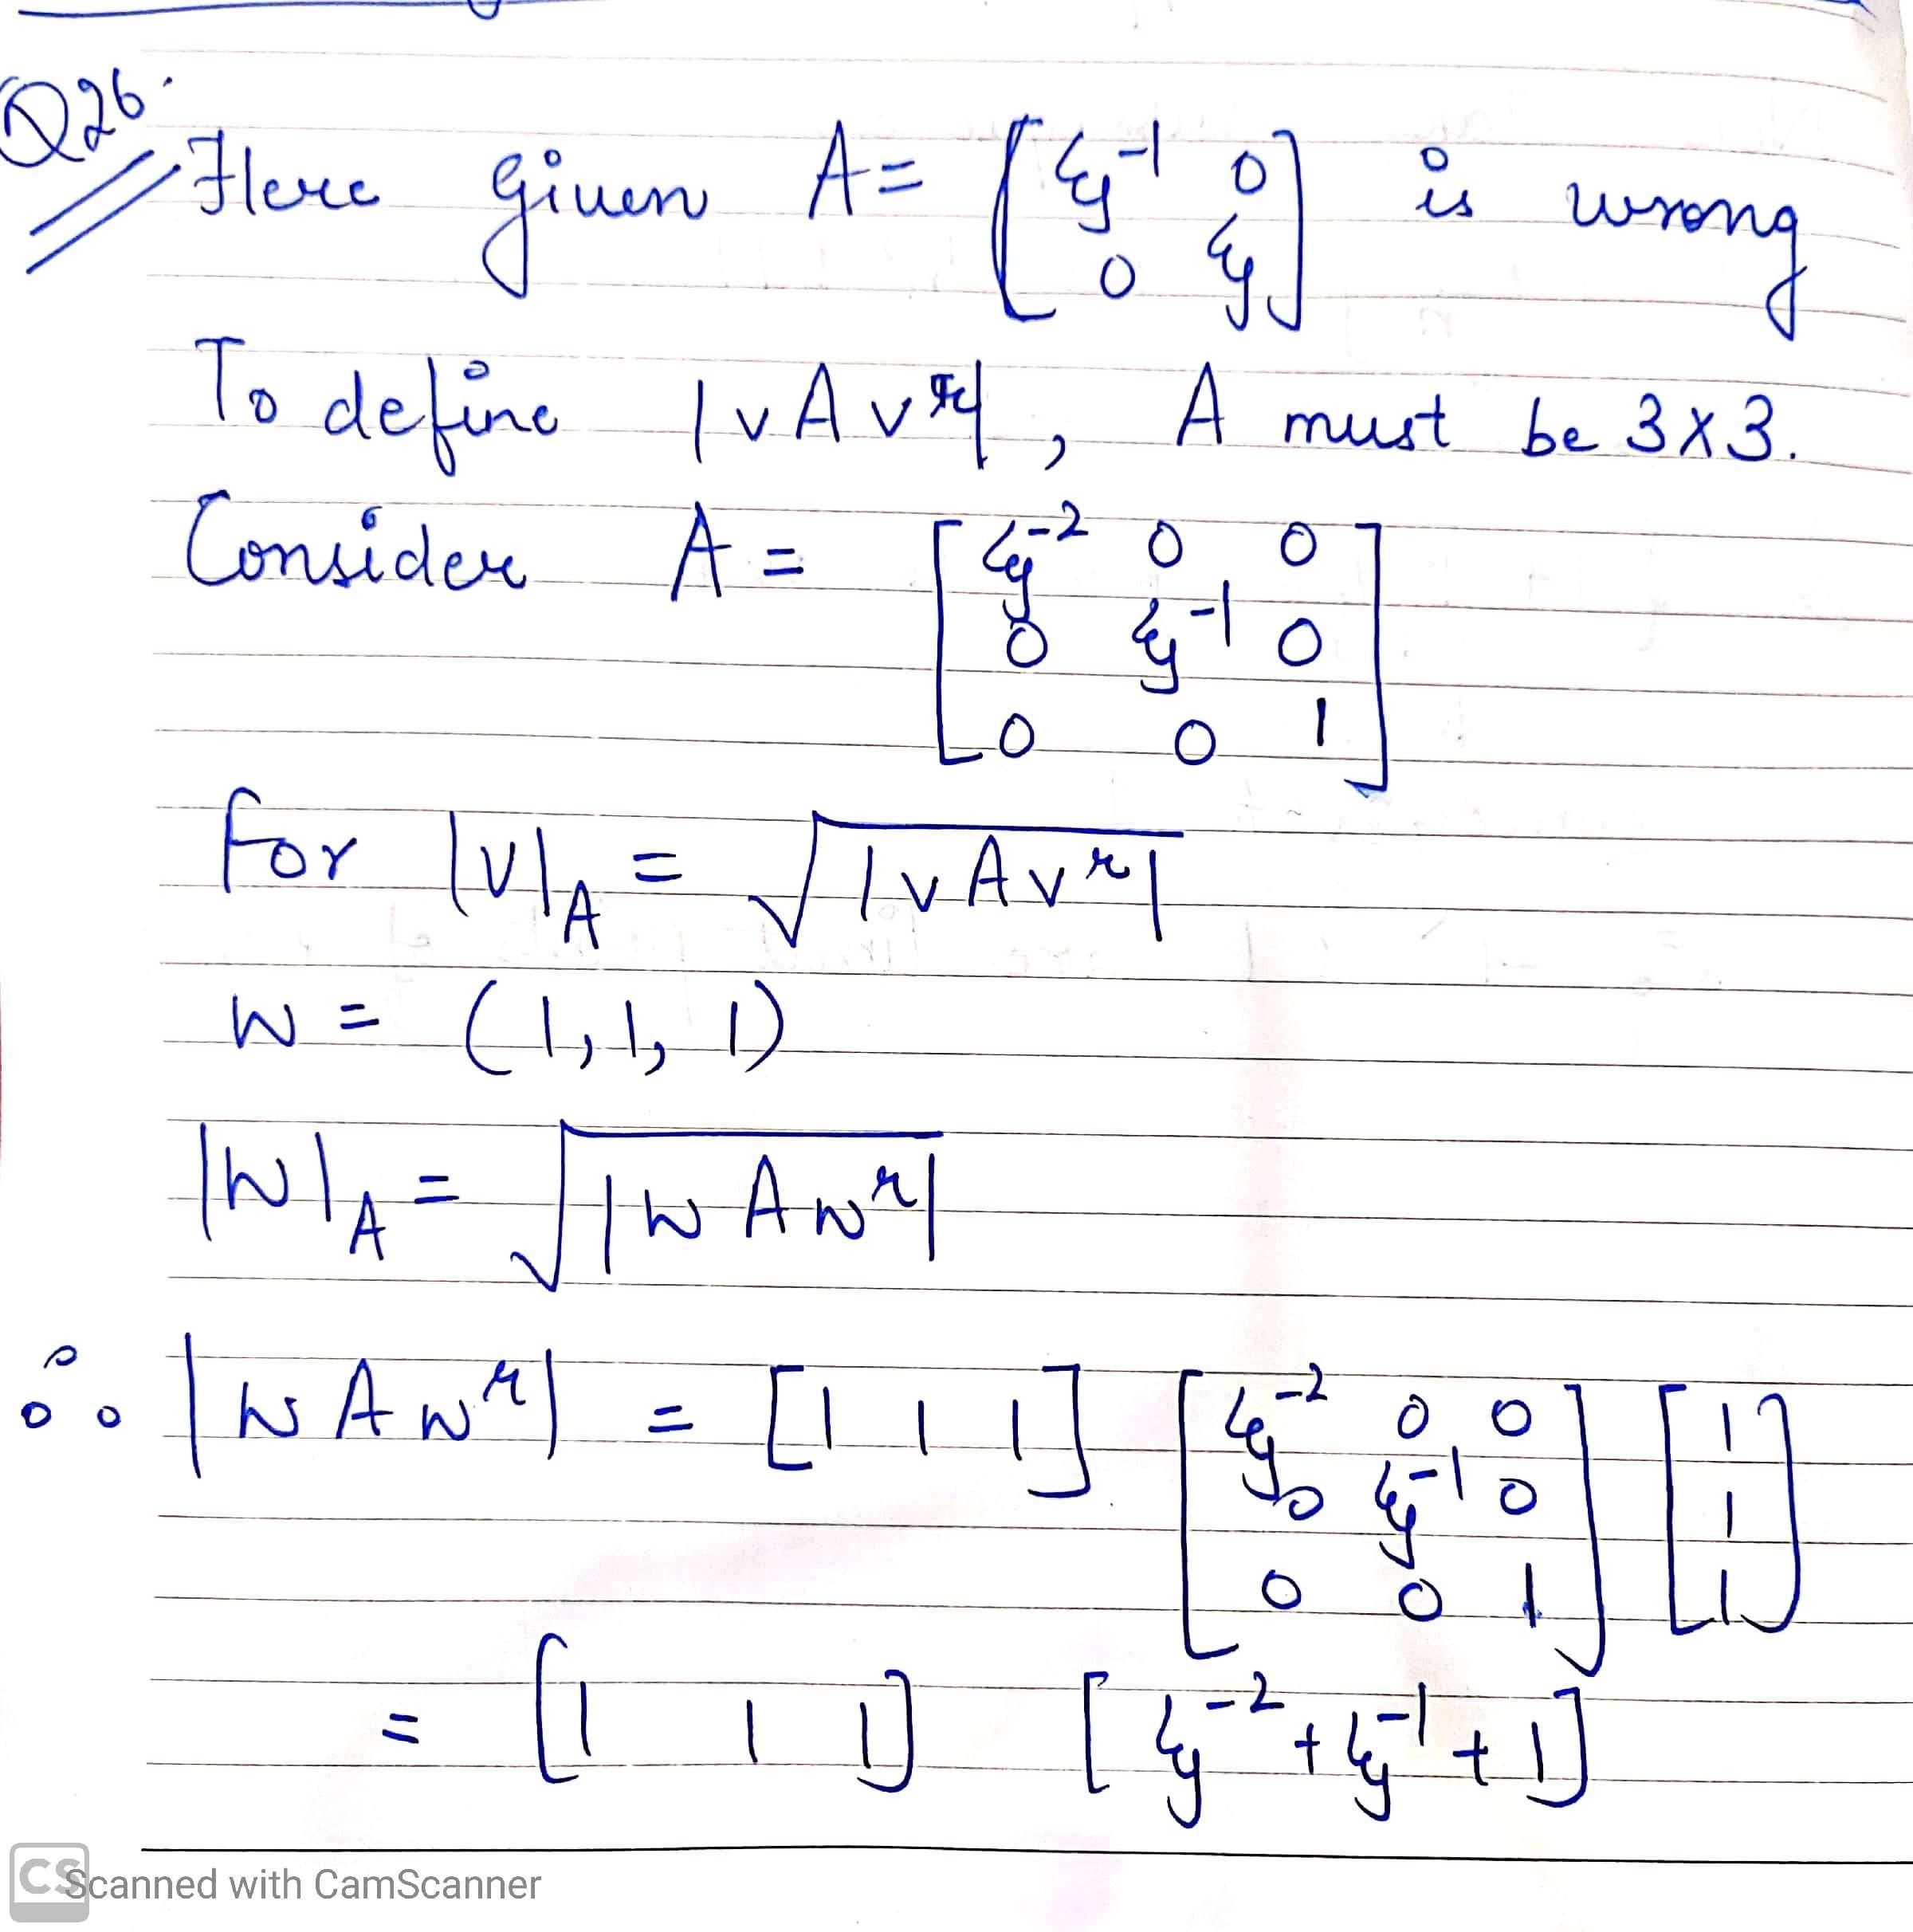 Q26.
Here given A = [ξ⁻¹ 0
0 ξ] is wrong
To define |vAvᵗ|, A must be 3x3.
Consider A = [ξ⁻² 0 0
0 ξ⁻¹ 0
0 0 1]
for |v|_A = √|vAvʳ|
w = (1, 1, 1)
|w|_A = √|wAwʳ|
∴ |wAwʳ| = [1 1 1] [ξ⁻² 0 0
0 ξ⁻¹ 0
0 0 1] [1
1
1]
= [1 1 1] [ξ⁻² + ξ⁻¹ + 1]
CS Scanned with CamScanner